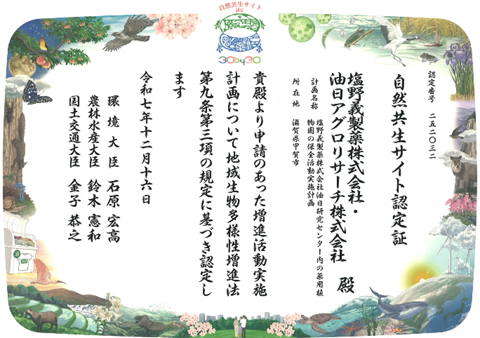 自然共生サイト
認定
30by30
認定番号 二五二〇三二
自然共生サイト認定証
塩野義製薬株式会社・
油日アグロリサーチ株式会社 殿
計画名称 塩野義製薬株式会社油日研究センター内の薬用植
物園の保全活動実施計画
所在地 滋賀県甲賀市
貴殿より申請のあった増進活動実施
計画について地域生物多様性増進法
第九条第三項の規定に基づき認定し
ます
令和七年十二月十六日
環境大臣 石原宏高
農林水産大臣 鈴木憲和
国土交通大臣 金子恭之